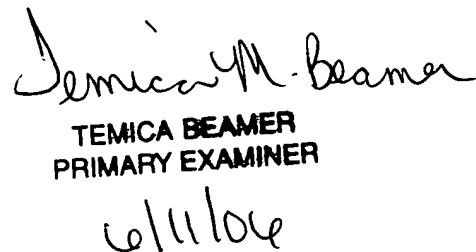 Temica M. Beamer
TEMICA BEAMER
PRIMARY EXAMINER
6/11/06